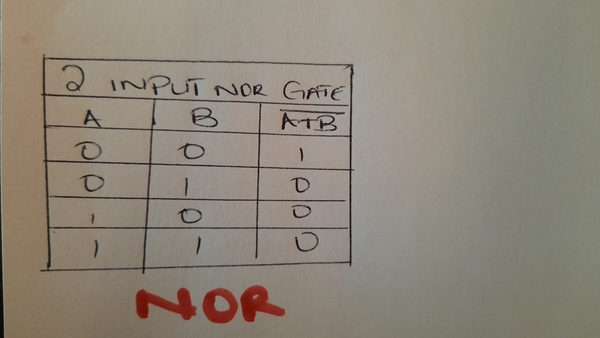 2 INPUT NOR GATE
A B A+B
0 0 1
0 1 0
1 0 0
1 1 0
NOR